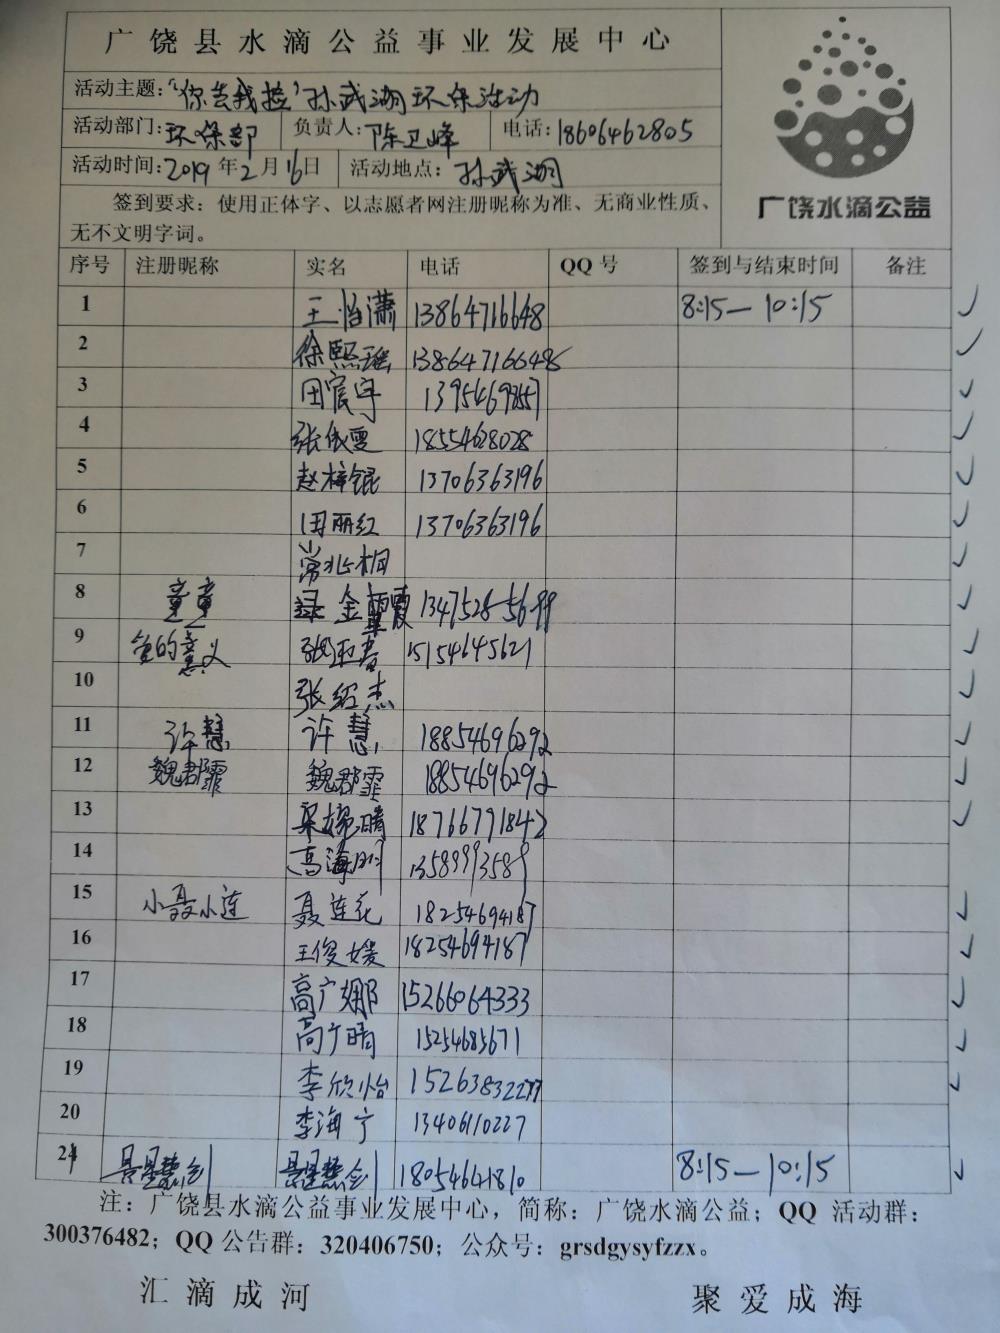 广饶县水滴公益事业发展中心
活动主题:"你丢我捡"孙武湖环保活动
活动部门:环保部 负责人:陈卫峰 电话:18606462805
活动时间:2019年2月16日 活动地点:孙武湖
签到要求:使用正体字、以志愿者网注册昵称为准、无商业性质、
无不文明字词。
广饶水滴公益
序号 注册昵称 实名 电话 QQ号 签到与结束时间 备注
1 13864716648 8:15—10:15
2 徐熙瑶 13864716648
3 田宸宇 13954698557
4 18554628028
5 赵梓锟 13706363196
6 田丽红 13706363196
7 常兆桐
8 童童 1347528-5699
9 15154645621
10 张绍杰
11 许慧 许慧 18854696292
12 魏郡霏 魏郡霏 18854696292
13 18766791842
14 高海明 13589993589
15 小聂小连 聂连花 18254694187
16 王俊媛 18254694187
17 高广娜 15266064333
18 高广晴 15254685671
19 李欣怡 15263832277
20 李海宁 13406110227
21 18054641810 8:15—10:15
注:广饶县水滴公益事业发展中心,简称:广饶水滴公益;QQ 活动群:
300376482;QQ公告群:320406750;公众号:grsdgysyfzzx。
汇滴成河 聚爱成海